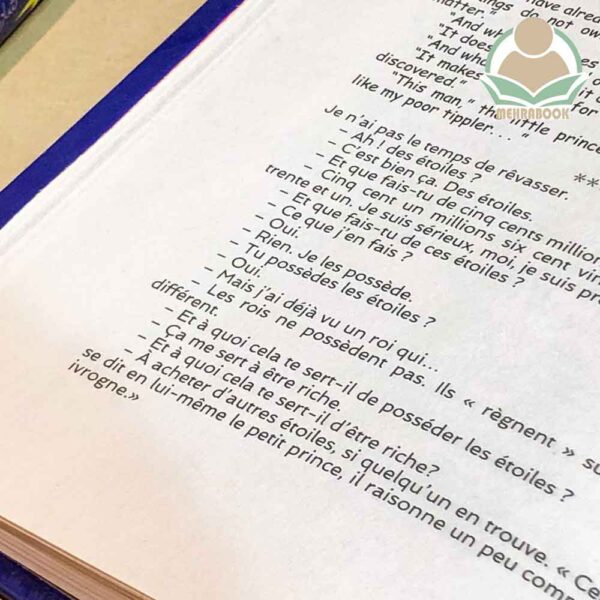 have alrea
ings do not ow
matter."
"And wh
"It does es
"And wha
"It makes
discovered."
"This man," the little prince
like my poor tippler. . . "
MEHRABOOK
**
Je n'ai pas le temps de rêvasser.
– Ah ! des étoiles ?
– C'est bien ça. Des étoiles.
– Et que fais-tu de cinq cents million
– Cinq cent un millions six cent vin
trente et un. Je suis sérieux, moi, je suis pré
– Et que fais-tu de ces étoiles ?
– Ce que j'en fais ?
– Oui.
– Rien. Je les possède.
– Tu possèdes les étoiles ?
– Oui.
– Mais j'ai déjà vu un roi qui...
– Les rois ne possèdent pas. Ils « règnent » su
différent.
– Et à quoi cela te sert-il de posséder les étoiles ?
– Ça me sert à être riche.
– Et à quoi cela te sert-il d'être riche?
– À acheter d'autres étoiles, si quelqu'un en trouve. « Ce
se dit en lui-même le petit prince, il raisonne un peu comm
ivrogne.»